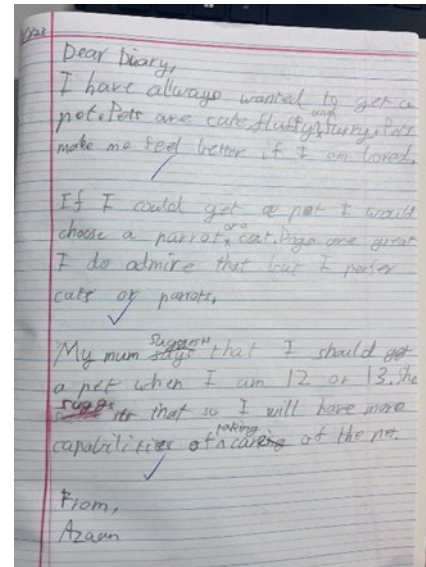 Dear Diary,
I have allways wanted to get a
pet. Pets are cute, fluffy and furry. Pets
make me feel better if I am bored.
If I could get a pet I would
choose a parrot or a cat. Dogs are great
I do admire that but I perfer
cats or parrots.
My mum suggests that I should get
a pet when I am 12 or 13. She
suggests that so I will have more
capabilities of taking care of the pet.
From,
Azaan